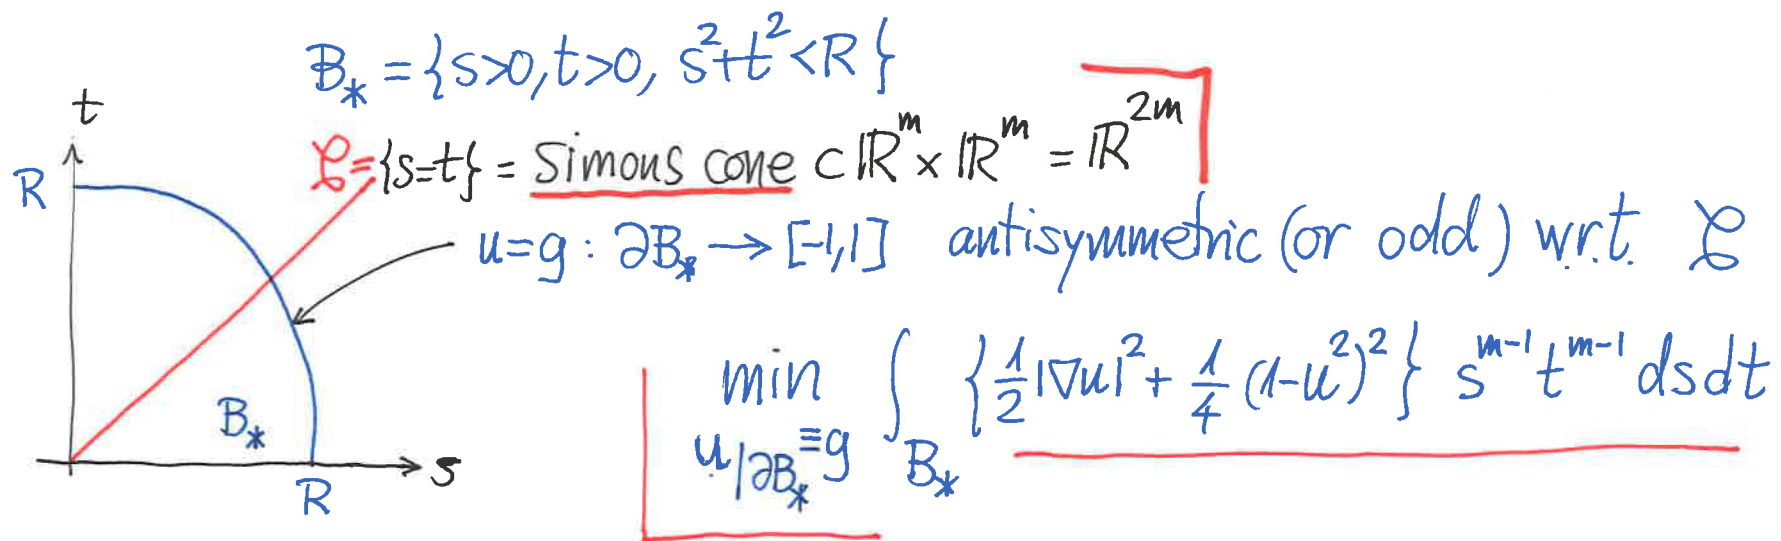 B_* = {s>0, t>0, s²+t²<R}
t
𝒞 = {s=t} = Simons cone ⊂ ℝ^m × ℝ^m = ℝ^{2m}
R
u=g : ∂B_* → [-1,1] antisymmetric (or odd) w.r.t. 𝒞
min_{u|∂B_* ≡ g} ∫_{B_*} {½|∇u|² + ¼(1-u²)²} s^{m-1} t^{m-1} ds dt
B_*
s
R